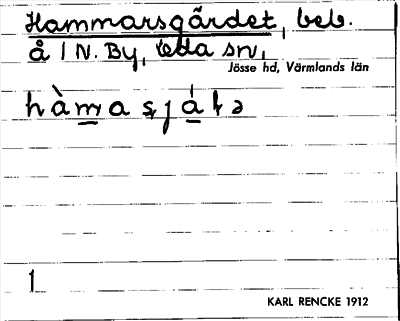 Hammarsgärdet, beb.
å 1 N. By, Eda sn,
Jösse hd, Värmlands län
hàmasjáɬə
1
KARL RENCKE 1912